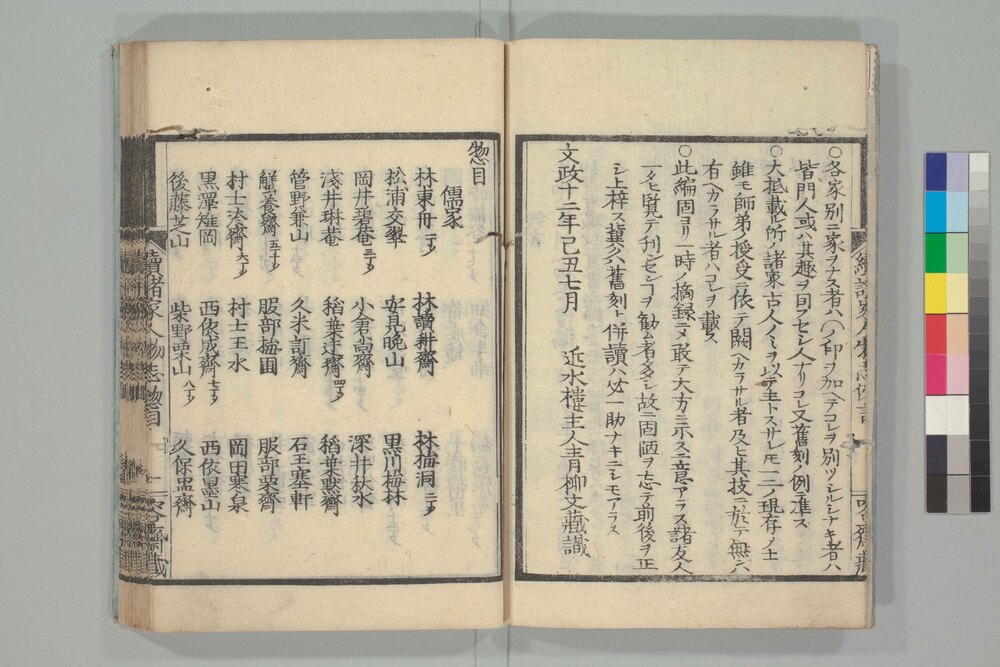 ○各家別ニ一家ヲナス者ハ〇ノ印ヲ加ヘテコレヲ別ツシルシナキ者ハ
皆門人或ハ其趣ヲ同フセシ人ナリコレ又舊刻ノ例ニ准ス
○大抵載ル所ノ諸家古人ノミヲ以テ主トスサレ𪜈一二ノ現存ノ士
雖モ師弟ノ授受ニ依テ闕ヘカラサル者及ヒ其技ニ於テ無ンハ
有ヘカラサル者ハコレヲ載ス
○此編固ヨリ一時ノ摘録ニメ敢テ大方ニ示スニ意アラス諸友人
一タヒ覧テ刊センヿヲ勧ム者多シ故ニ固陋ヲ忘テ前後ヲ正
シ上梓ス冀クハ舊刻ト併讀ハ必一助ナキニシモアラス
文政十二年己丑七月 近水樓主人青柳文藏識
惣目
儒家
林東舟 一丁 林讀耕齋 林梅洞 二丁
松浦交翠 安見晩山 黒川梅林
岡井碧菴 三丁 小倉尚齋 深井秋水
淺井琳菴 稻葉迂齋 四丁 稻葉默齋
管野兼山 久米訂齋 石王塞軒
蟹養齋 五丁 服部梅圃 服部栗齋
村士淡齋 六丁 村士玉水 岡田寒泉
黒澤雉岡 西依成齋 七丁 西依墨山
後藤芝山 柴野栗山 八丁 久保盅齋
續諸家人物志惣目